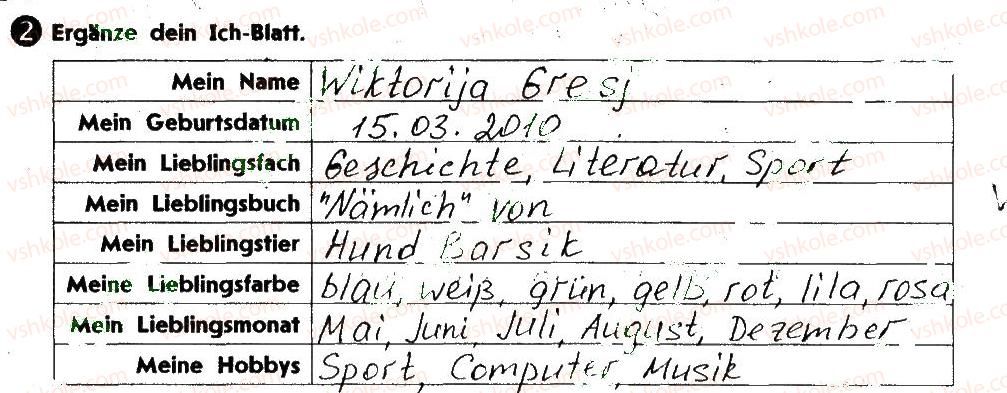 2 Ergänze dein Ich-Blatt.
Mein Name Wiktorija Gresj
Mein Geburtsdatum 15.03.2010
Mein Lieblingsfach Geschichte, Literatur, Sport
Mein Lieblingsbuch "Nämlich" von
Mein Lieblingstier Hund Barsik
Meine Lieblingsfarbe blau, weiß, grün, gelb, rot, lila, rosa,
Mein Lieblingsmonat Mai, Juni, Juli, August, Dezember
Meine Hobbys Sport, Computer, Musik